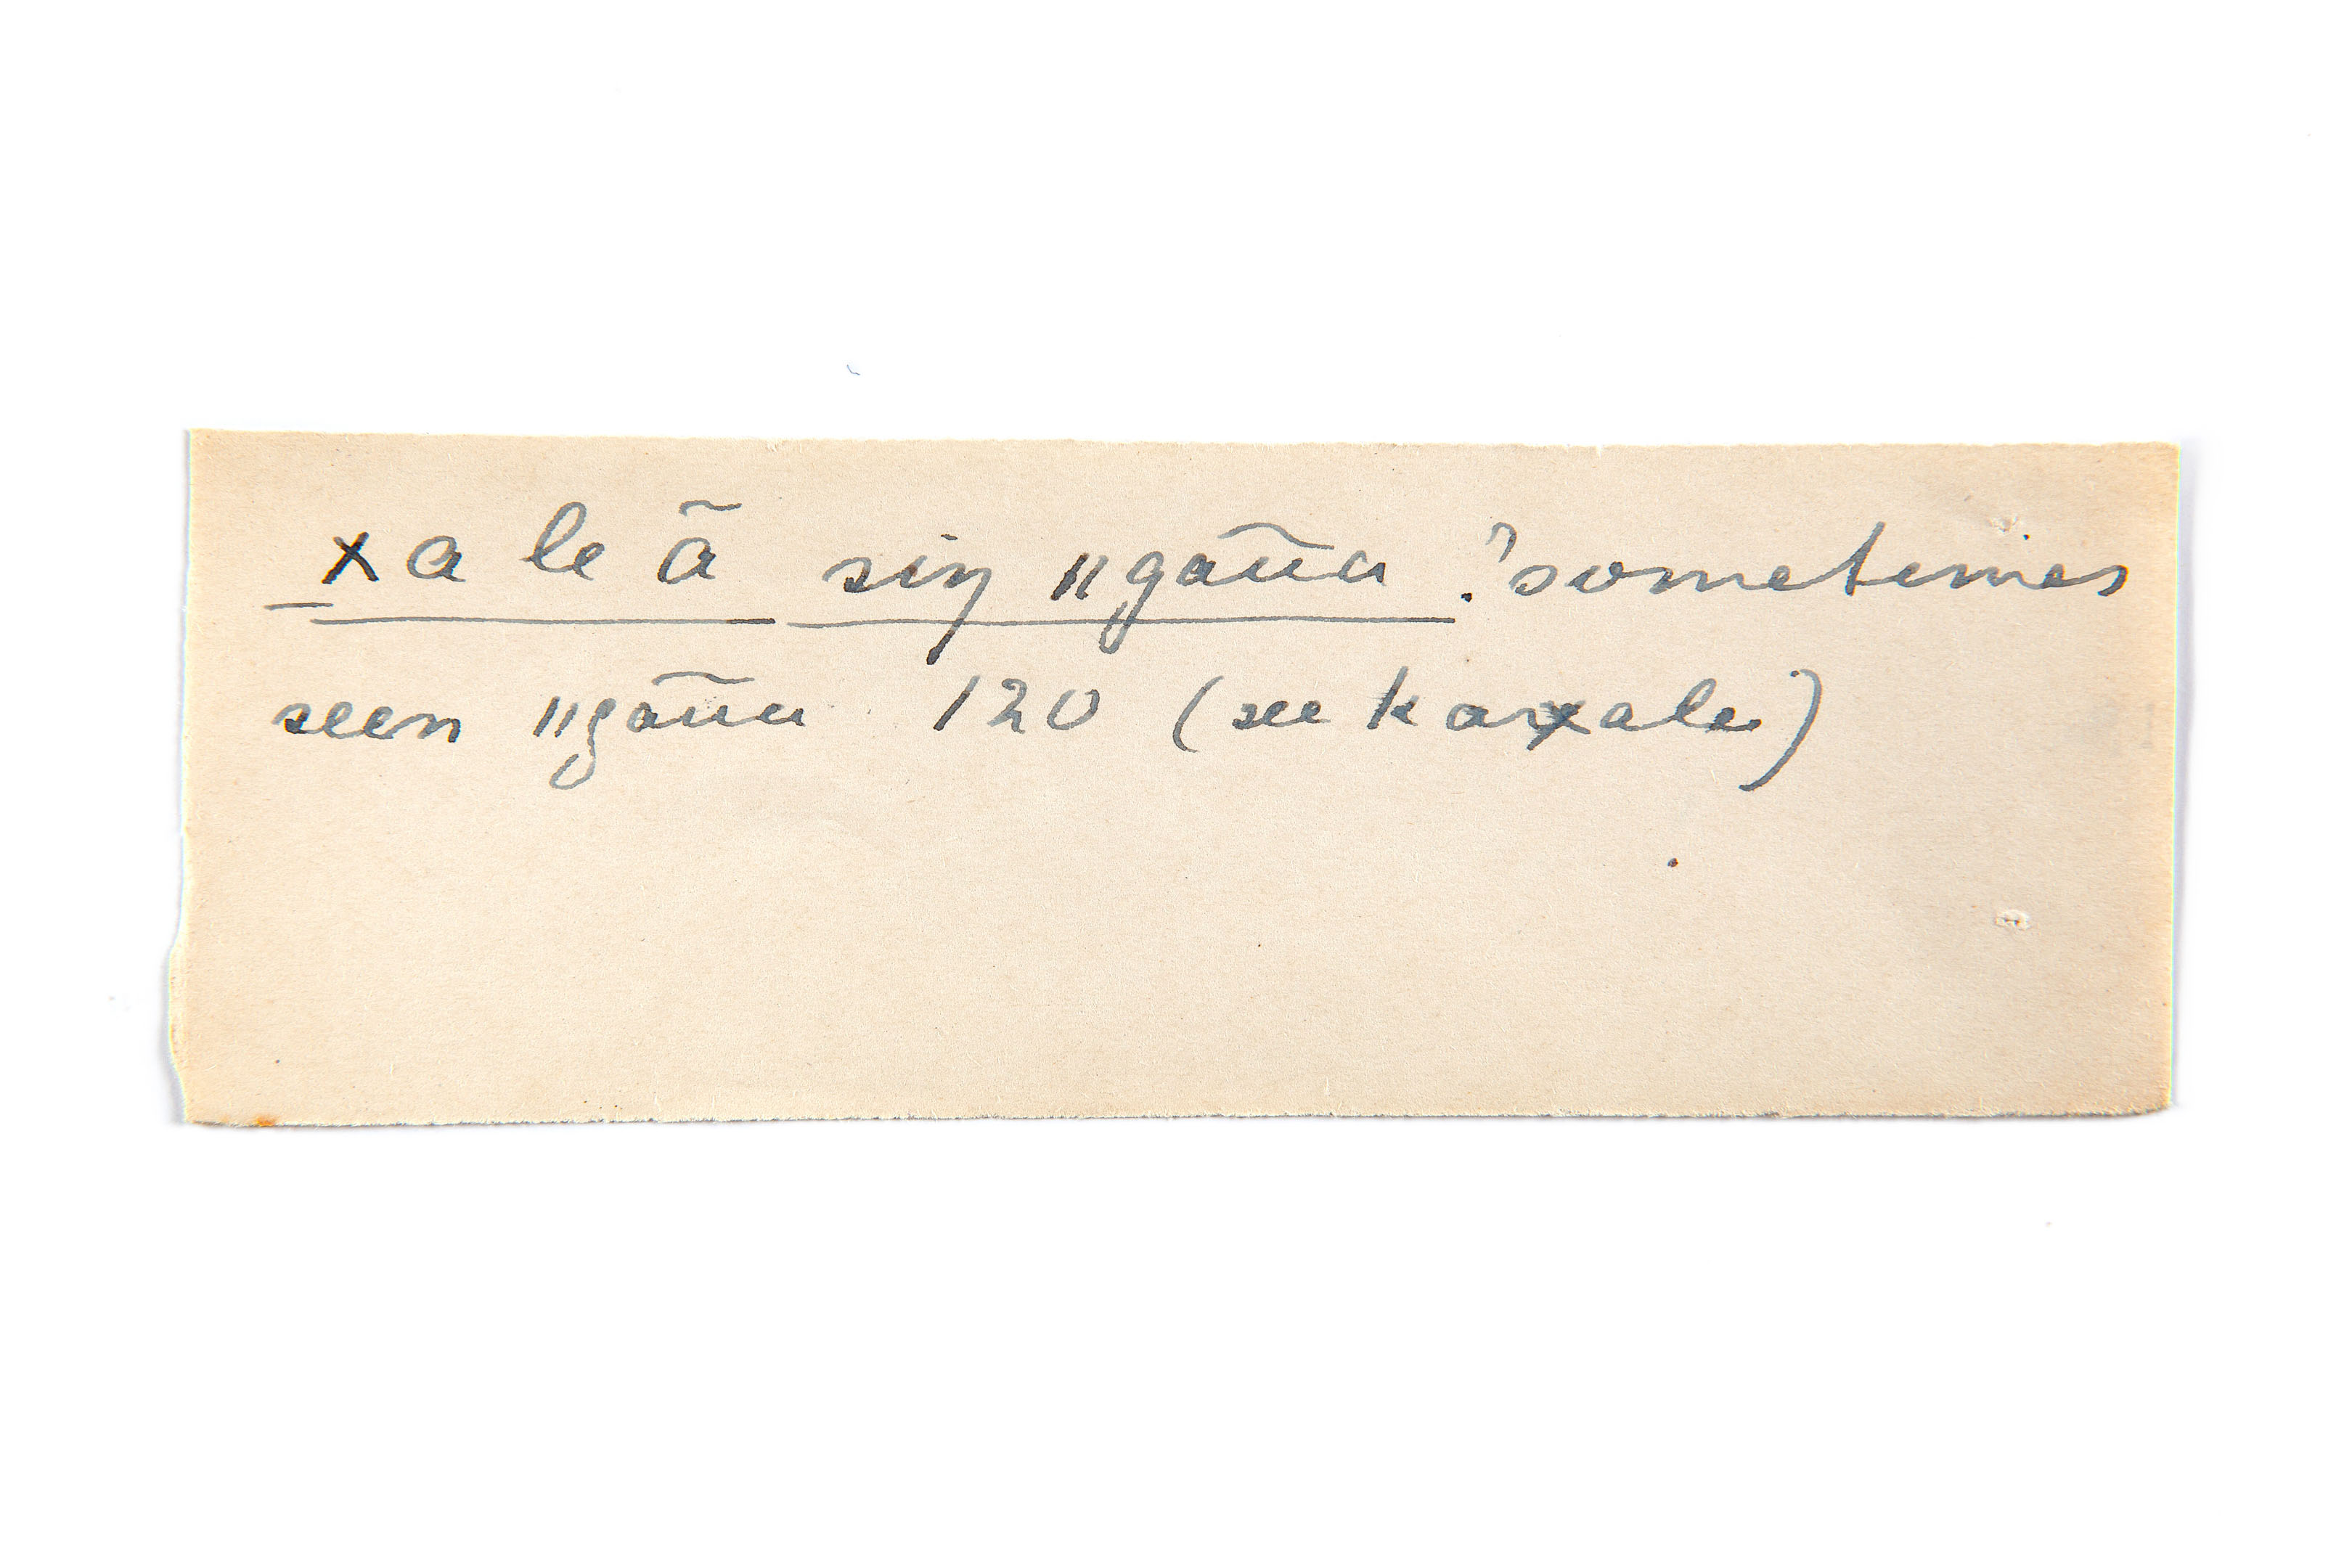 xa le ã siŋ ǁgãũa ? sometimes
seen ǁgãũa 120 (see kaxale)